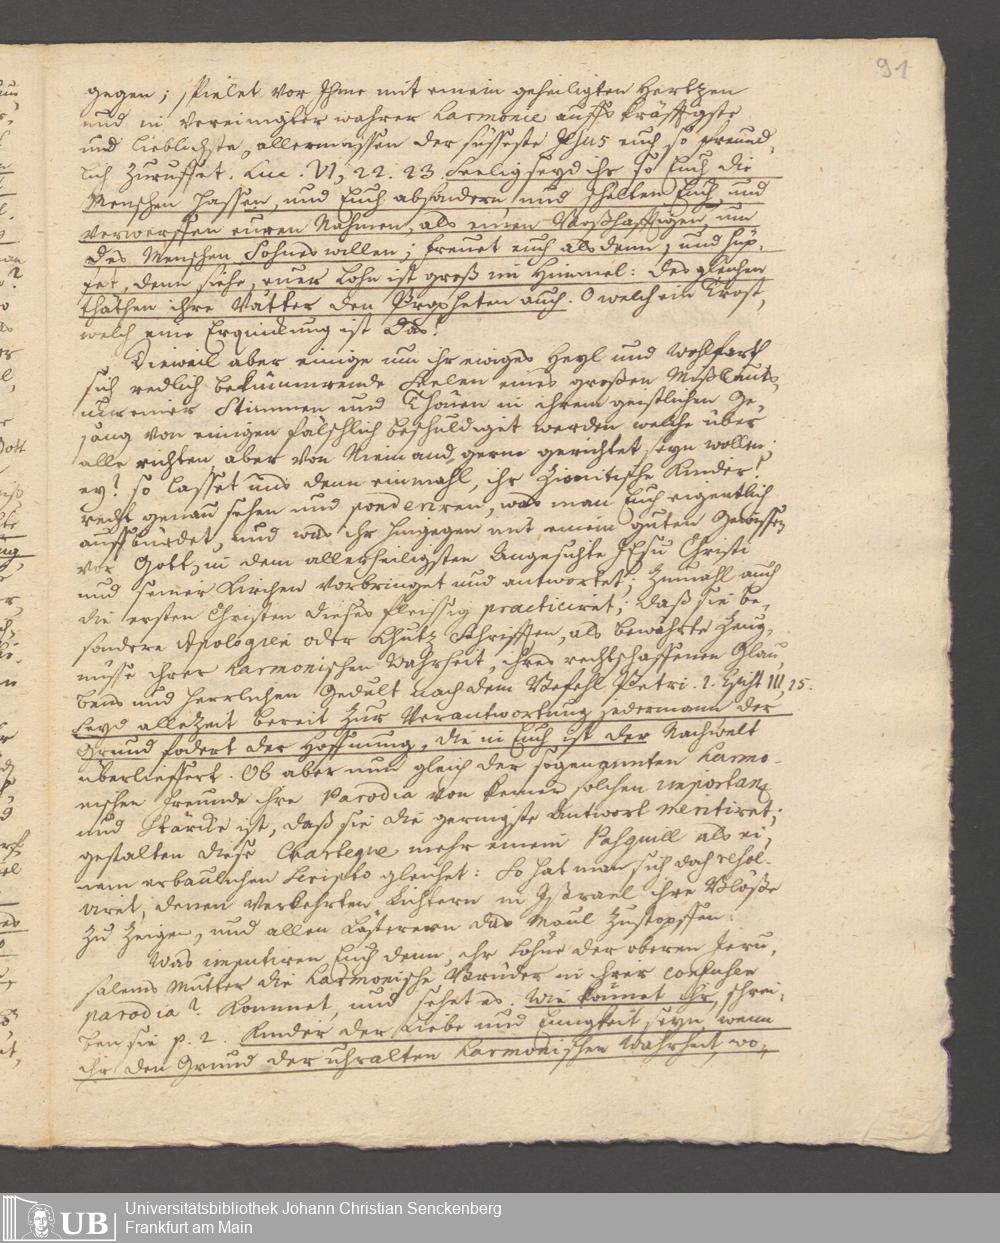 91
gegen; spielet vor Ihme mit einem geheiligten Hertzen
und in vereinigter wahrer Harmonie auffs kräfftigste
und lieblichste, allermassen der süsseste JEsus euch so freund,
lich zuruffet. Luc. VI, 22. 23 Seelig seyd ihr so Euch die
Menschen hassen, und Euch absondern, und schelten Euch, und
verwerffen euren Nahmen, als einen Boßhafftigen, um
des Menschen Sohnes willen; freuet euch alsdenn, und hüp,
fet, denn siehe, euer Lohn ist groß im Himmel: desgleichen
thäthen ihre Vätter den Propheten auch. O welch ein Trost,
welch eine Erquickung ist das!
Dieweil aber einige um ihr ewiges Heyl und Wohlfarth
sich redlich bekümmerende Seelen eines großen Mißlauts,
unreiner Stimmen und Thönen in ihrem geistlichen Ge,
sang von einigen fälschlich beschuldiget werden welche über
alle richten aber von Niemand gerne gerichtet seyn wollen;
ey? so lasset uns denn einmahl, ihr Zionitische Kinder!
recht genau sehen und ponderiren, was man Euch eigentlich
auffbürdet, und was ihr hingegen mit einem guten Gewissen
vor Gott, in dem allerheiligsten Angesichte JEsu Christi
und seiner Kirchen vorbringet und antwortet; Zumahl auch
die ersten Christen dieses fleissig practiciret; daß sie be,
sondere Apologien oder Schutz Schrifften, als bewährte Zeug,
nüsse ihrer Harmonischen Wahrheit, ihres rechtschaffenen Glau,
bens und herrlichen Gedult nach dem Befehl Petri. 1. Epist III, 15.
Seyd allezeit bereit zur Verantwortung jedermann der
Grund fodert der Hoffnung, die in Euch ist der Nachwelt
überlieffert. Ob aber nun gleich der sogenannten Harmo-
nischen Freunde ihre Parodia von keiner solchen importanz
und Stärcke ist, daß sie die geringste Antwort meritiret;
gestalten diese Charteque mehr einem Pasquill als ei,
nem erbaulichen Scripto gleichet: So hat man sich doch resol-
viret, denen verkehrten Lichtern in Israel ihre Blöße
zu zeigen, und allen Lästerern das Maul zustopffen.
Was imputiren Euch denn, ihr Söhne der oberen Jeru,
salems Mutter die Harmonische Brüder in ihrer confusen
parodia? Kommet, und sehet es. Wie könnet ihr, schrei,
ben sie p. 2. Kinder der Liebe und Einigkeit seyn, wenn
ihr den Grund der uhralten Harmonischen Wahrheit, wo,
UB
Universitätsbibliothek Johann Christian Senckenberg
Frankfurt am Main